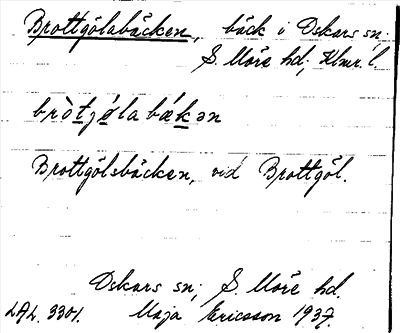 Brottgölabäcken, bäck i Oskars sn.
S. Möre hd, Klmr. l.
bròtjøla bækən
Brottgölsbäcken, vid Brottgöl.
Oskars sn, S. Möre hd.
LAL. 3301. Maja Ericsson 1937.